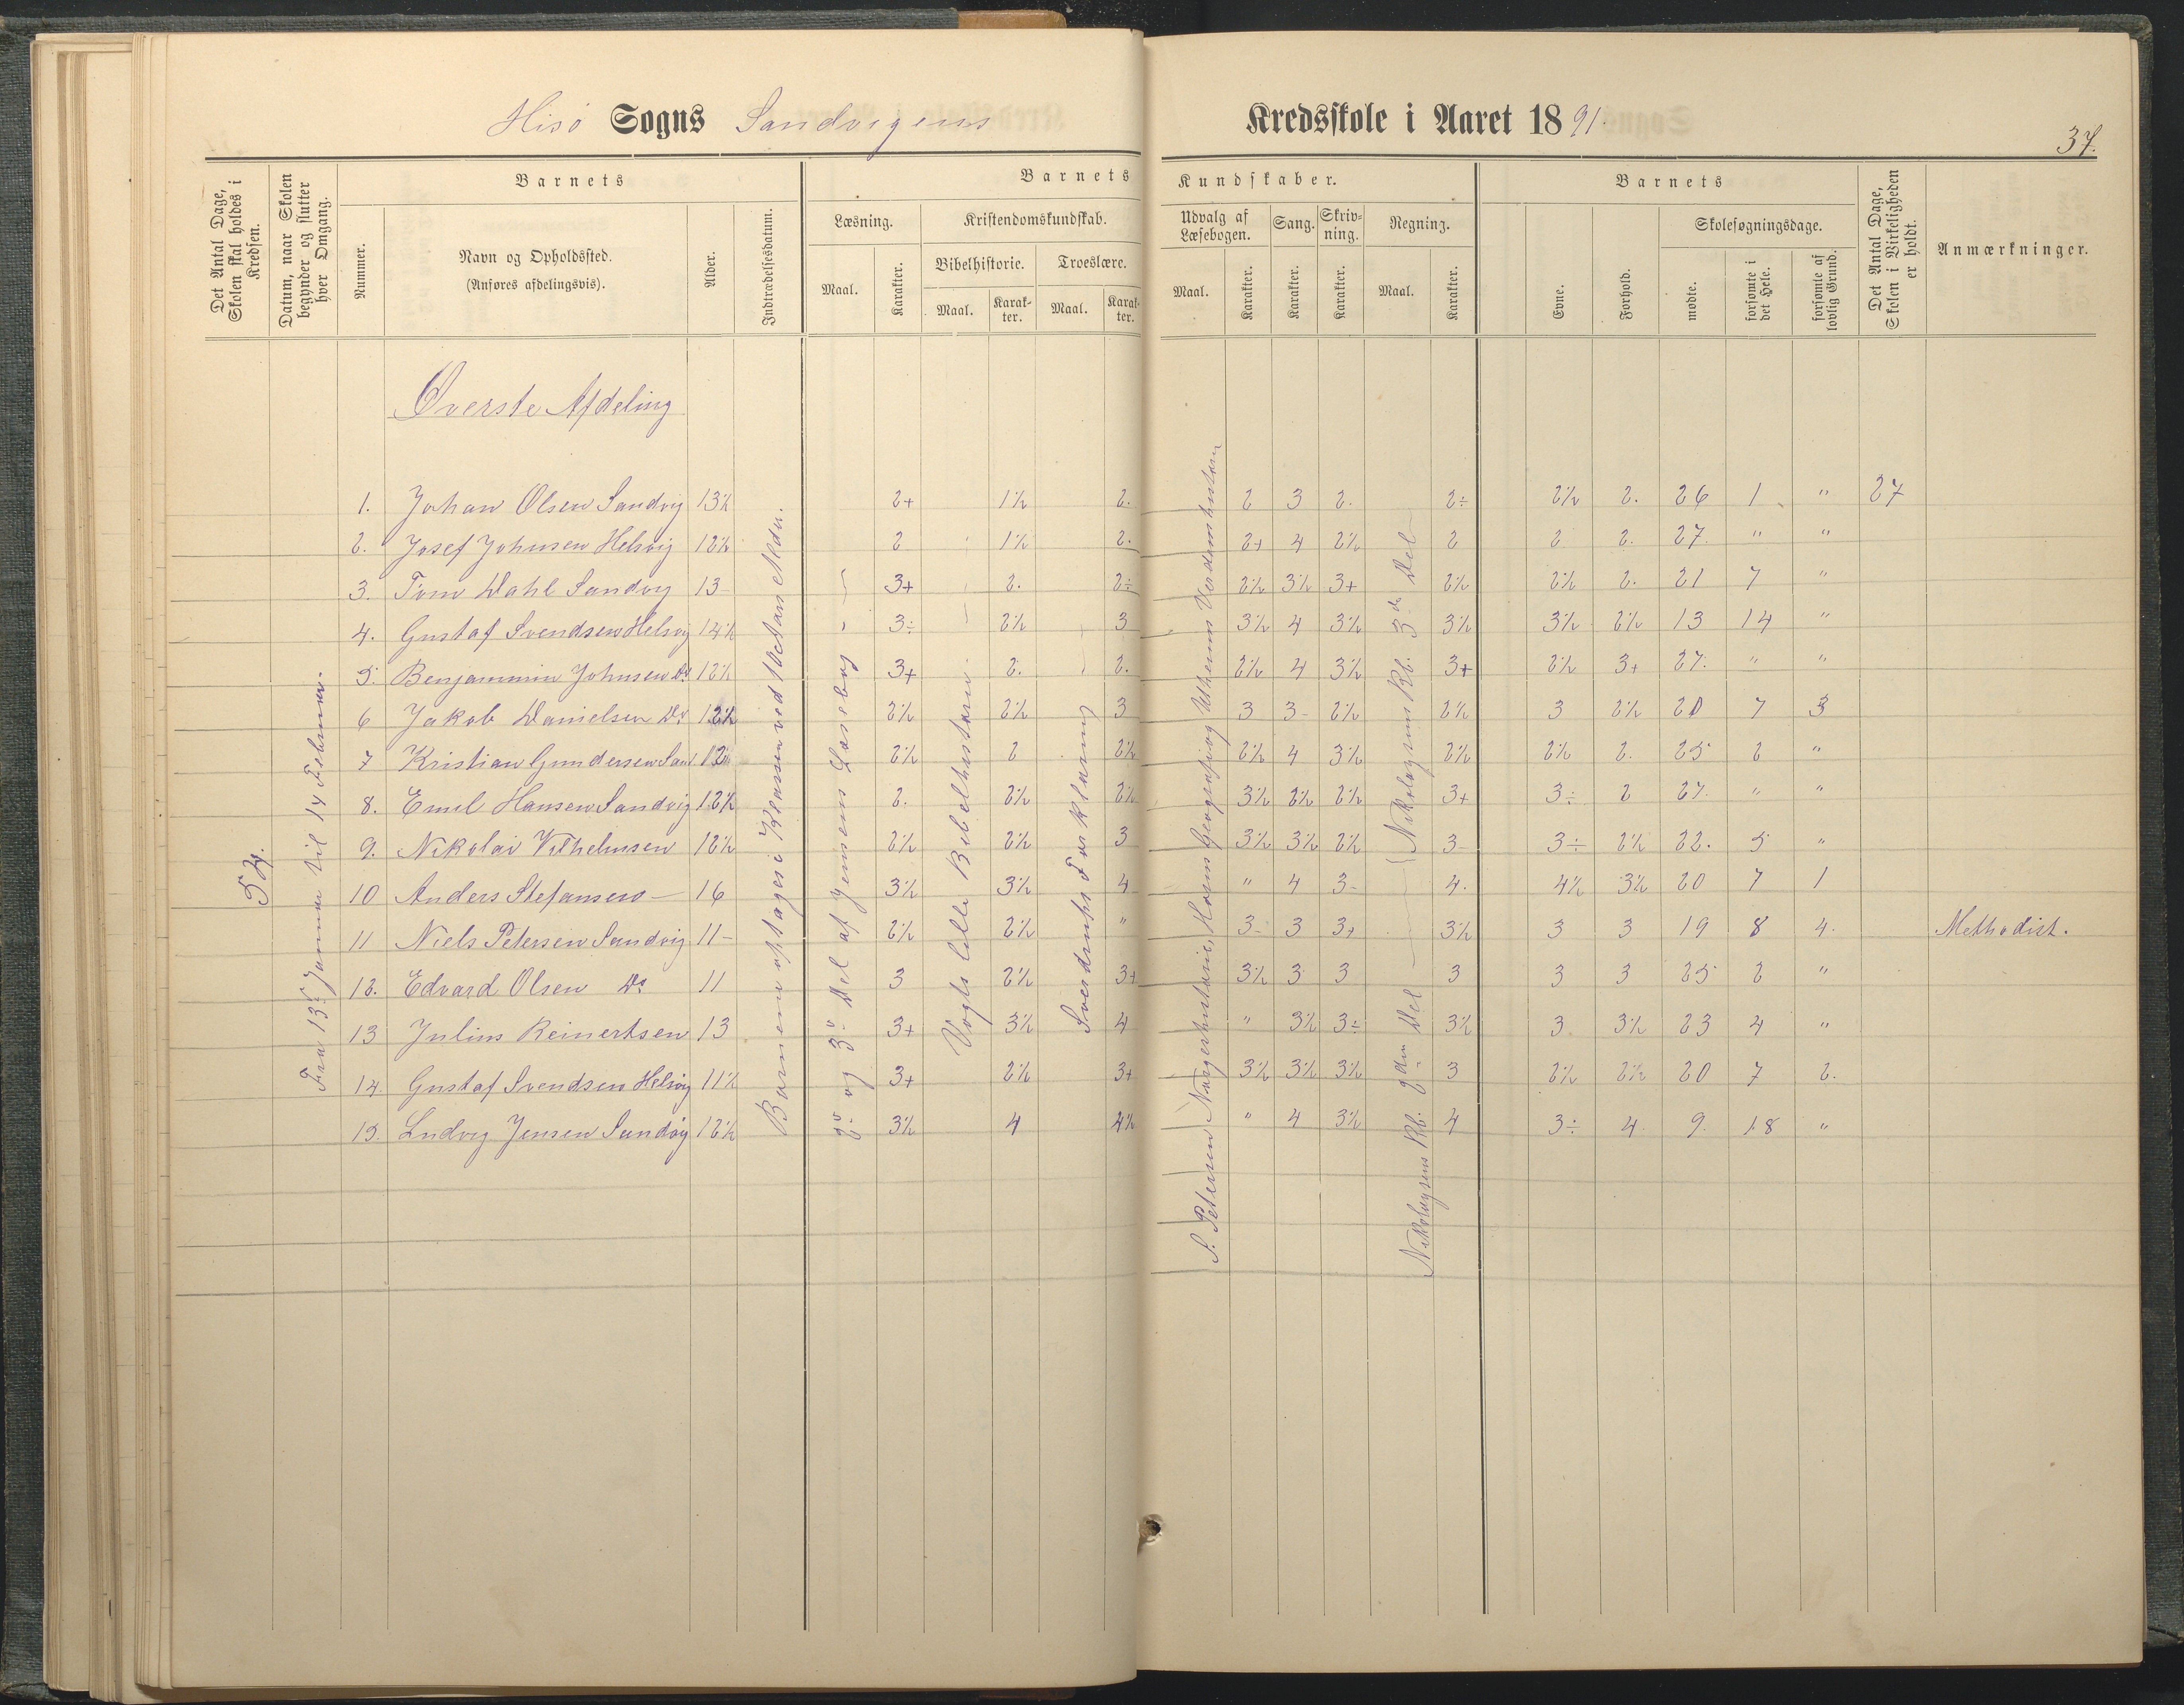 Hisø Sogns Sandvigens Kredsskole i Aaret 1891.
37.
Det Antal Dage, Skolen skal holdes i Kredsen.
Datum, naar Skolen begynder og slutter hver Omgang.
Nummer.
Barnets
Navn og Opholdssted.
(Anføres afdelingsvis).
Alder.
Indtrædelsesdatum.
Barnets Kundskaber.
Læsning.
Maal.
Karakter.
Kristendomskundskab.
Bibelhistorie.
Maal.
Karakter.
Troeslære.
Maal.
Karakter.
Udvalg af Læsebogen.
Maal.
Karakter.
Sang.
Karakter.
Skrivning.
Karakter.
Regning.
Maal.
Karakter.
Barnets
Evne.
Forhold.
Skolesøgningsdage.
mødte.
forsømte i det Hele.
forsømte af lovlig Grund.
Det Antal Dage, Skolen i Virkeligheden er holdt.
Anmærkninger.
Øverste Afdeling
54.
Fra 13de Januar til 14 Februar.
Børnene optages i Klassen ved 10de Aars Alder.
2den og 3die Del af Jensens Læsebog
Vogts lille Bibelhistorie
Sverdrups Forklaring
S. Petersen Norgeshistorie, Horns Geografi og Verdenshistorien
Nikolaysens Rb. 3die Del
Nikolaysens Rb. 2den Del
1. Johan Olsen Sandvig 13½ 2+ 1½ 2. 2 3 2. 2÷ 2½ 2. 26 1 " 27
2. Josef Johnsen Helsvig 12½ 2 1½ 2. 2+ 4 2½ 2 2 2. 27. " "
3. Tom Dahl Sandvig 13 3+ 2. 2÷ 2½ 3½ 3+ 2½ 2½ 2. 21 7 "
4. Gustaf Svendsen Helsvig 14½ 3÷ 2½ 3 3½ 4 3½ 3½ 3½ 2½ 13 14 "
5. Benjammin Johnsen Do 12½ 3+ 2. 2. 2½ 4 3½ 3+ 2½ 3+ 27. " "
6 Jakob Danielsen Do 12½ 2½ 2½ 3 3 3- 2½ 2½ 3 2½ 20 7 3
7 Kristian Gundersen San 12½ 2½ 2 2½ 2½ 4 3½ 2½ 2½ 2. 25 2 "
8. Emil Hansen Sandvig 12½ 2. 2½ 2½ 3½ 2½ 2½ 3+ 3÷ 2 27. " "
9. Nikolai Vilhelmsen 12½ 2½ 2½ 3 3½ 3½ 2½ 3- 3÷ 2½ 22. 5 "
10 Anders Stefansen - 16 3½ 3½ 4 " 4 3- 4. 4½ 3½ 20 7 1
11 Niels Petersen Sandvig 11- 2½ 2½ " 3- 3 3+ 3½ 3 3 19 8 4. Methodist.
12. Edvard Olsen Do 11 3 2½ 3+ 3½ 3 3 3 3 3 25 2 "
13 Julius Reinertsen 13 3+ 3½ 4 " 3½ 3÷ 3½ 3 3½ 23 4 "
14. Gustaf Svendsen Helsvig 11½ 3+ 2½ 3+ 3½ 3½ 3½ 3 2½ 2½ 20 7 2.
15. Ludvig Jensen Sandvig 12½ 3½ 4 4½ " 4 3½ 4 3÷ 4. 9. 18 "